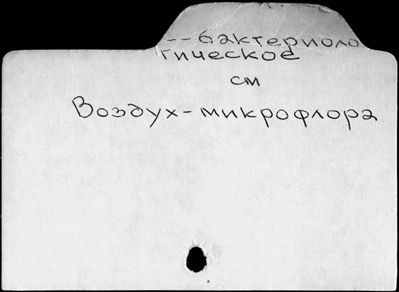 -- бактериоло
гическое
см
Воздух-микрофлора